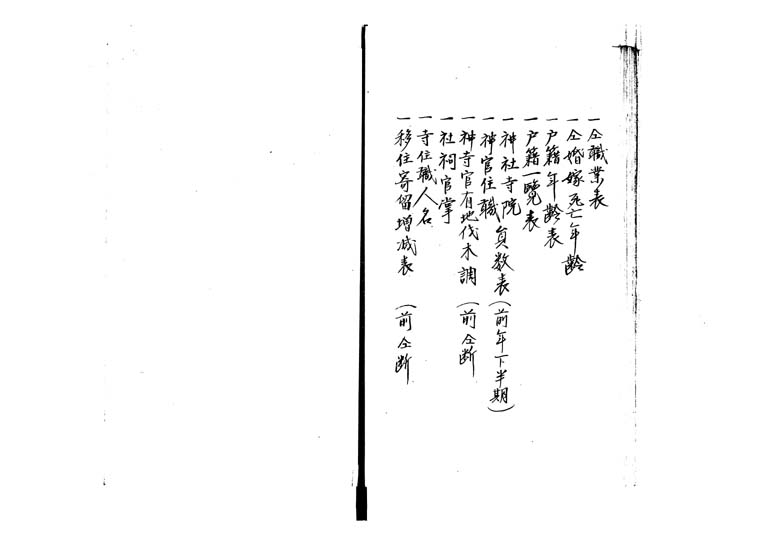 一仝職業表
一仝婚嫁死亡年齡
一戸籍年齢表
一戸籍一覧表
一神社寺院
一神官住職 員数表(前年下半期)
一神寺官有地伐木調(前仝断)
一社祠官掌
一寺住職人名
一移住寄留増减表(前仝断)